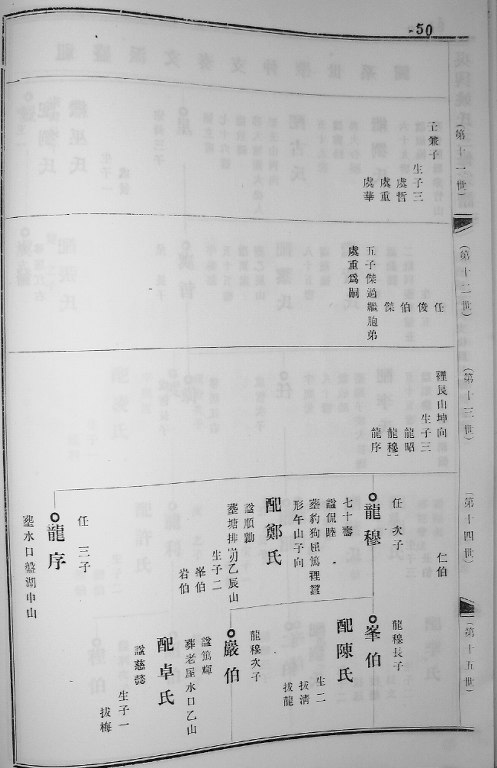 50
（第十一世）
子業子
生子三
虞哲
虞重
虞華
（第十二世）
任
俊
伯
傑
五子傑過繼胞弟
虞重爲嗣
（第十三世）
長山坤向
生子三
龍昭
龍穆
龍序
（第十四世）
仁伯
任 次子
龍穆
七十壽
諡侃睦
葬豹狗屈篤裡
形午山子向
配鄭氏
諡順勤
葬塘排刃乙辰山
生子二
峯伯
岩伯
任 三子
龍序
塟水口盤湖申山
（第十五世）
龍穆長子
峯伯
配陳氏
生二
拔淸
拔龍
龍穆次子
巖伯
諡篤輝
葬老屋水口乙山
配卓氏
諡慈懿
生子一
拔梅